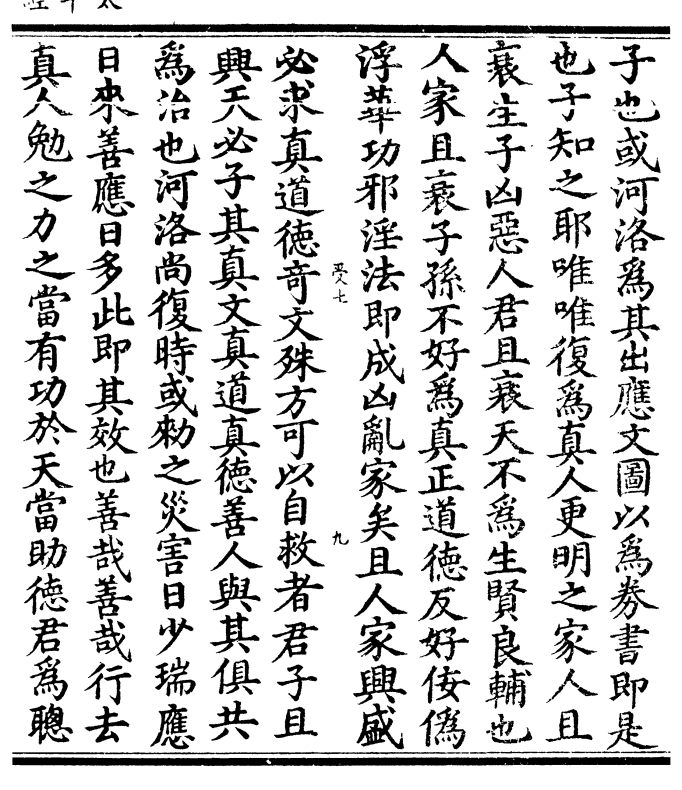 子也或河洛為其出應文圖以為券書即是
也子知之耶唯唯復為真人更明之家人且
衰生子凶惡人君且衰天不為生賢良輔也
人家且衰子孫不好為真正道德反好佞偽
浮華功邪淫法即成凶亂家矣且人家興盛
受七
九
必求真道德奇文殊方可以自救者君子且
興天必子其真文真道真德善人與其俱共
為治也河洛尚復時或勑之災害日少瑞應
日來善應日多此即其效也善哉善哉行去
真人勉之力之當有功於天當助德君為聰